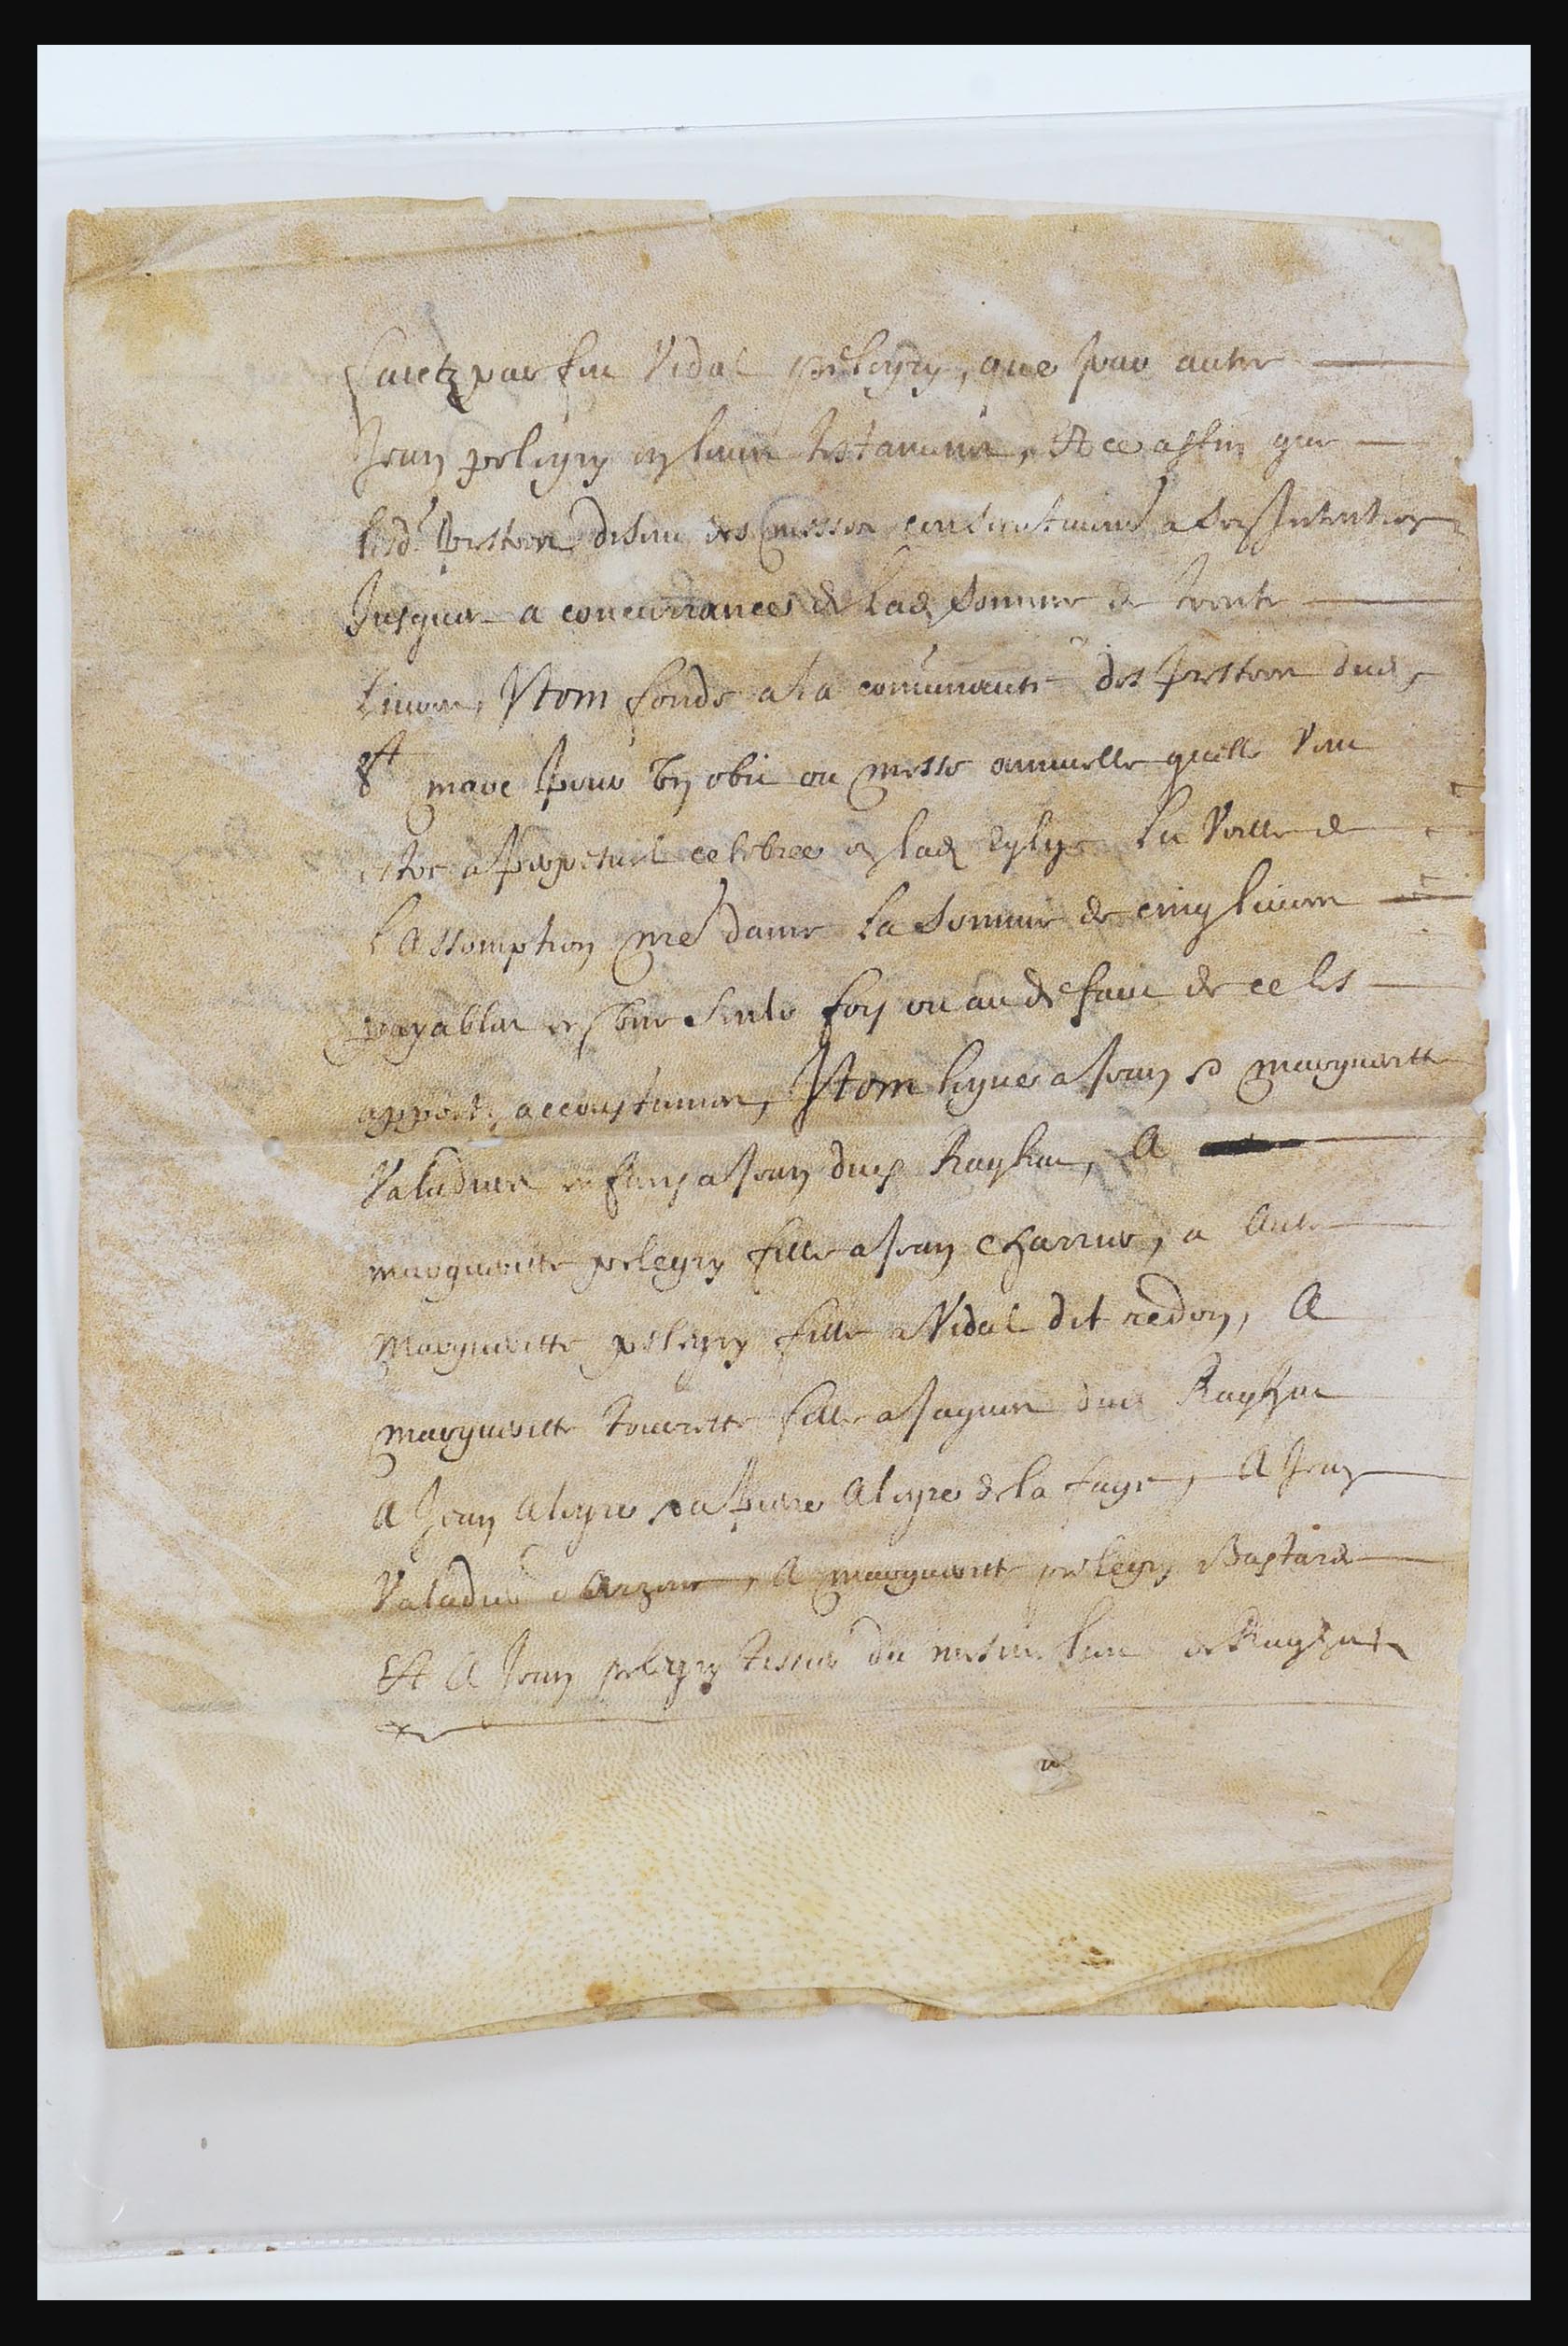 faictz par feu Vidal pelegry, que par autre
Jean pelegry en leurs testamens, Et ce affin que
lesd prestres disent des messes consecutivem a ses Intentions
Jusques a concurrances de lad somme de trente
Livres, Item fonde a la comunauté des prestres dud
St marc pour un obit ou messe annuelle quelle veut
estre a perpetuel celebree en lad Eglise la Veille de
l'Assomption nre dame la somme de cinq livres
payables une seule foy ou au deffaut de ce les
apportz accoustumes, Item legue a Jean et margueritte
Valadiers enfans a Jean dud Rayhac, A
margueritte pelegry fille a Jean charrie, a Autre
Marguerite pelegry fille a Vidal dit redon, A
marguerite tourette fille a Jaques dud Rayhac
A Jean Alegre et a pierre Alegre de la fage, A Jean
Valadie, A marguerite pelegry Bastarde
Et A Jean pelegry tissie du mesme lieu de Rayhac